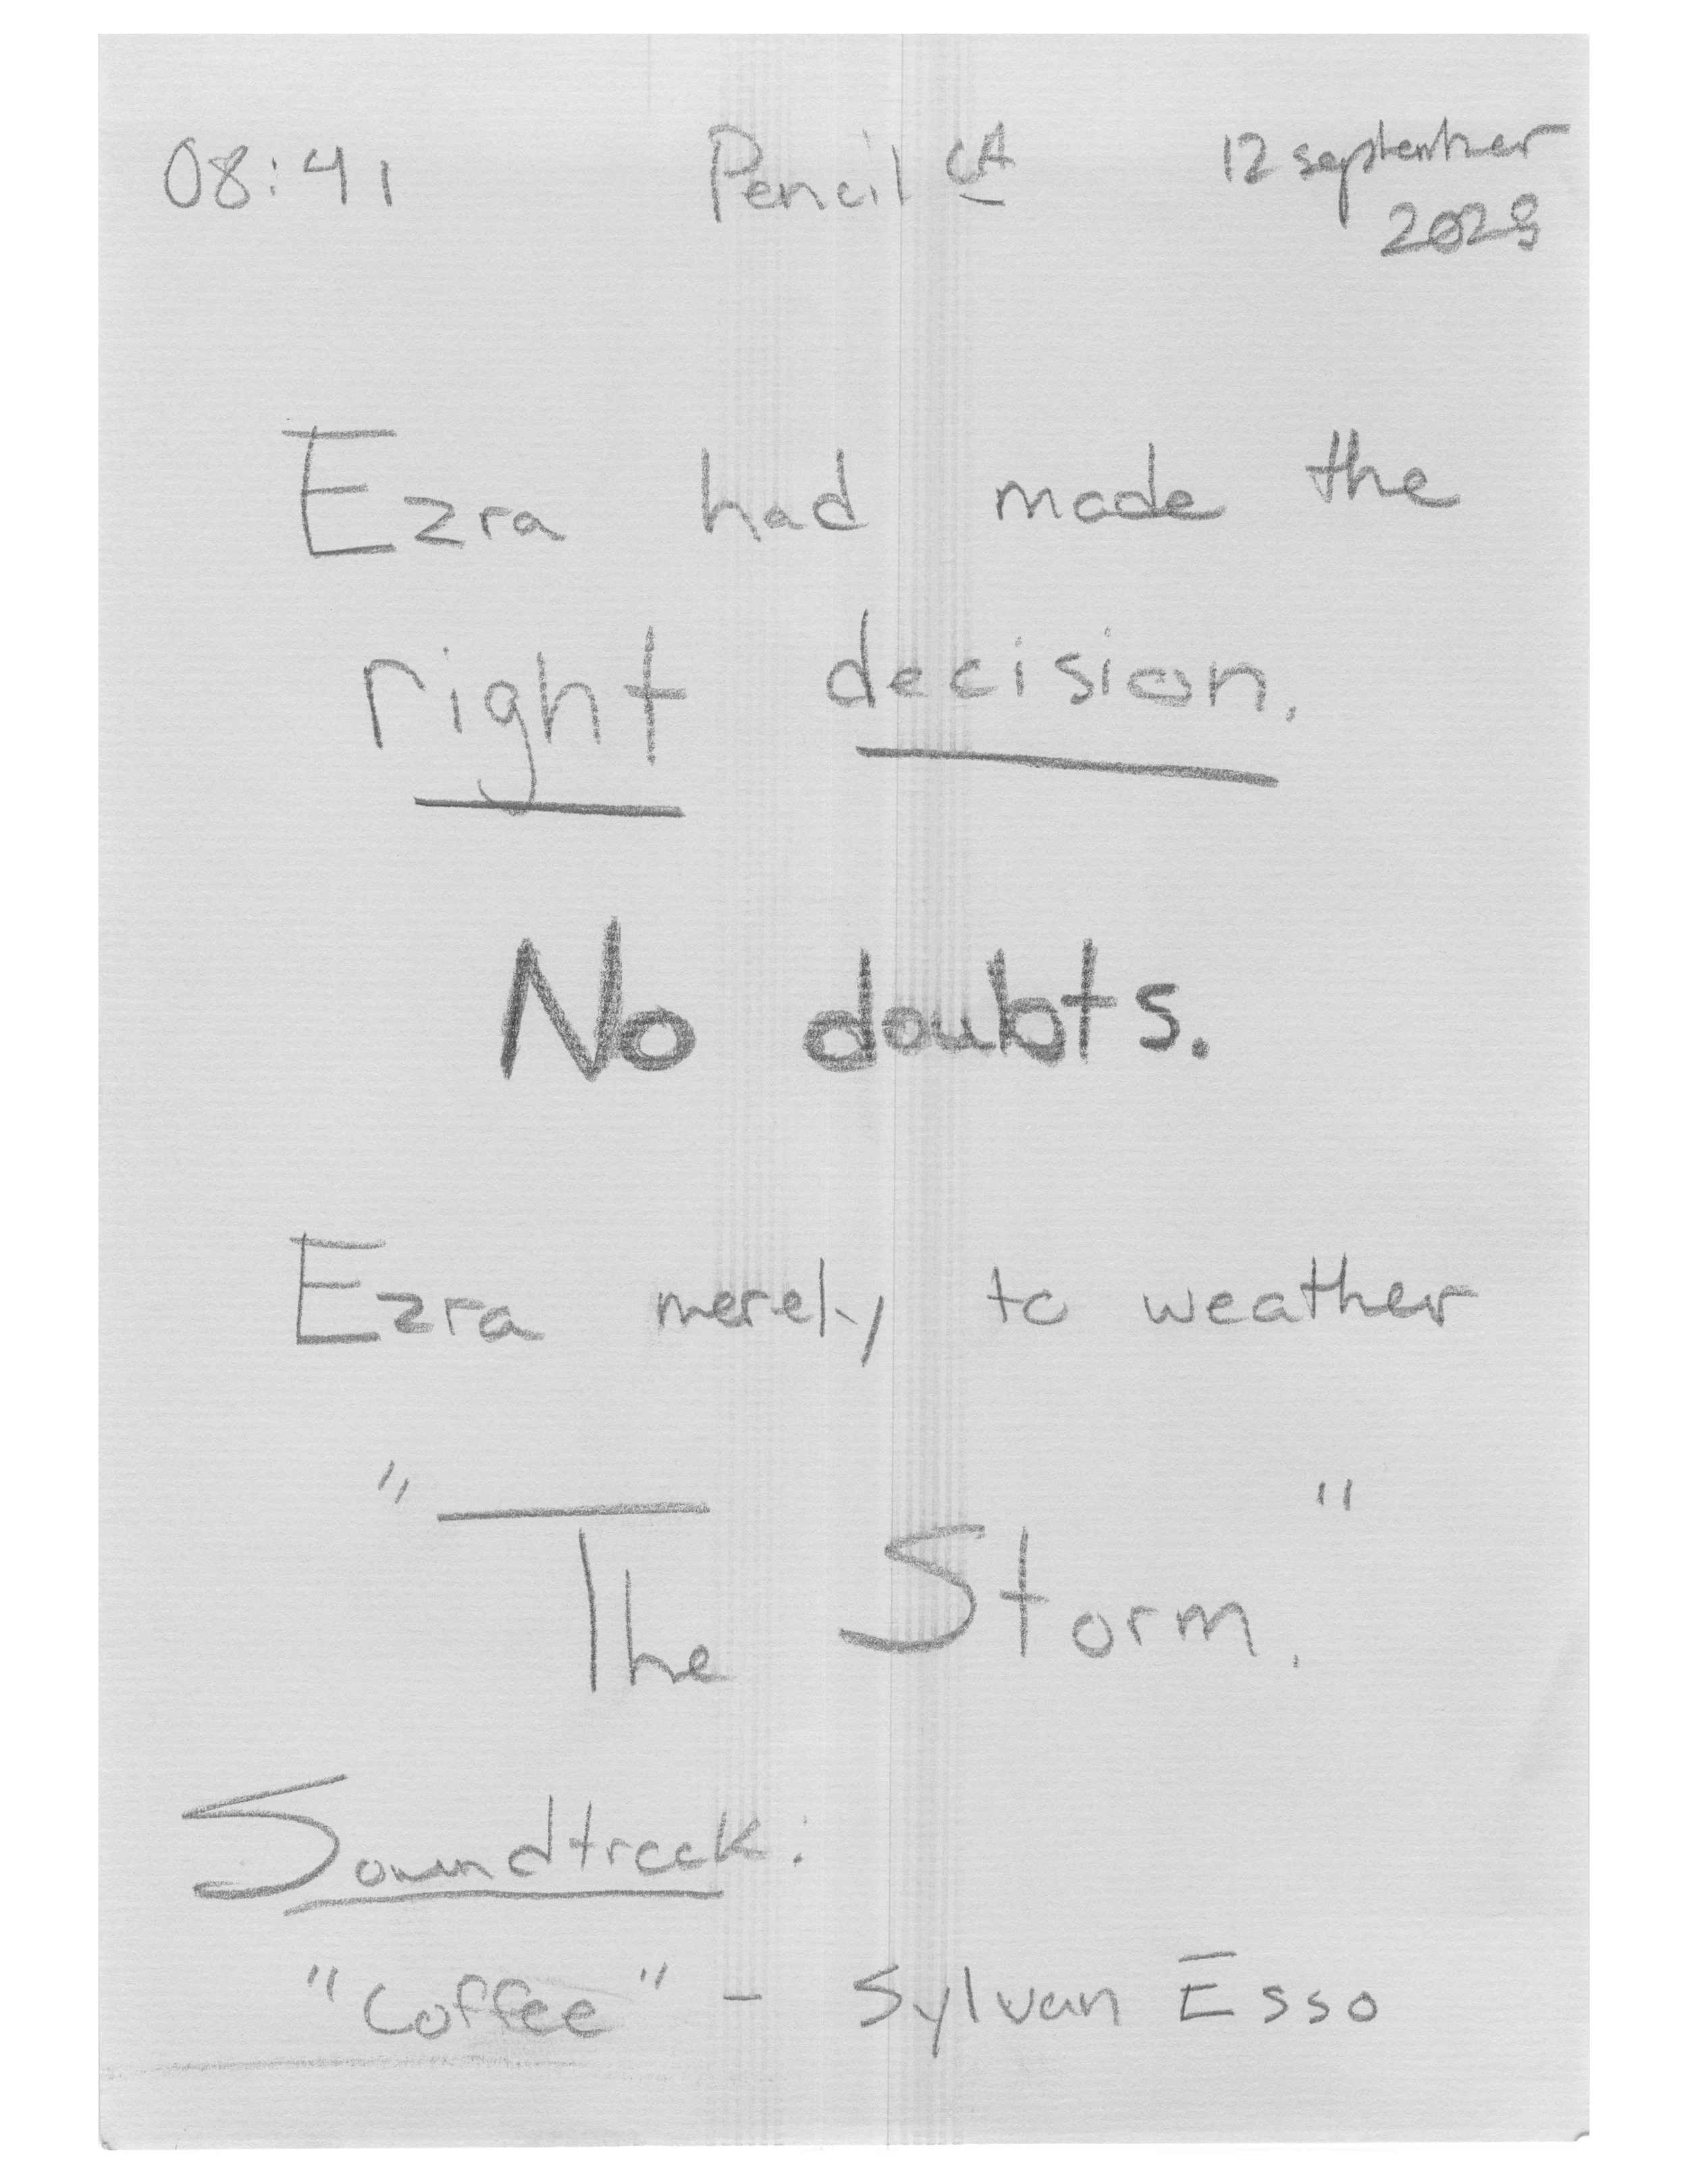 08:41 Pencil CA 12 september
2023
Ezra had made the
right decision.
No doubts.
Ezra merely to weather
"The Storm."
Soundtrack:
"Coffee" - Sylvan Esso